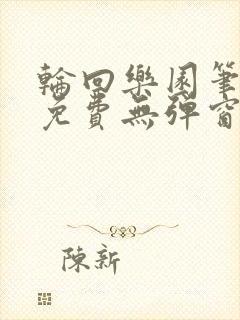 輪回樂園筆
免費無彈窗
陳新